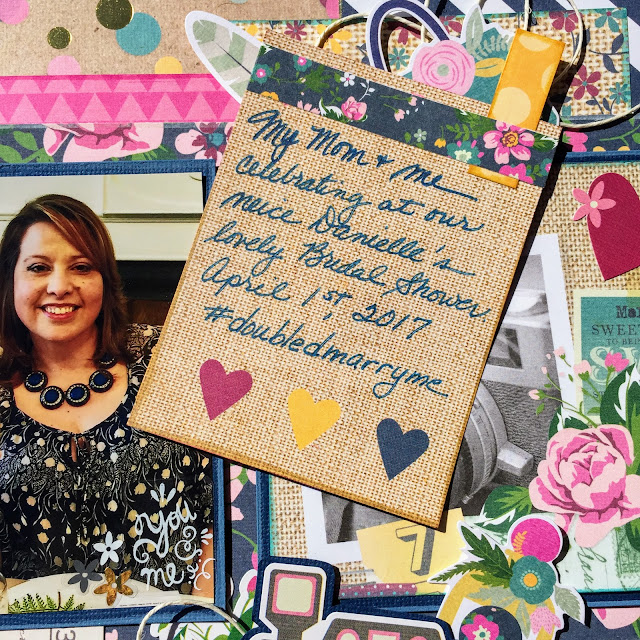 My Mom & me
celebrating at our
neice Danielle's
lovely Bridal Shower
April 1st, 2017
#doubledmarryme
you
&
me
SWEET
TO BE
7